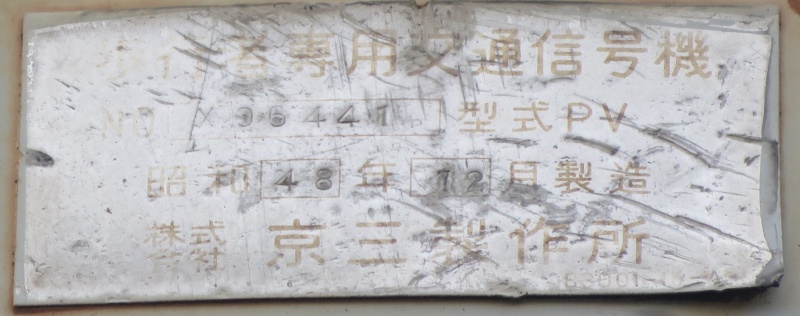 歩行者専用交通信号機
NO. X 36441 型式 PV
昭和 48 年 12 月製造
株式会社 京三製作所